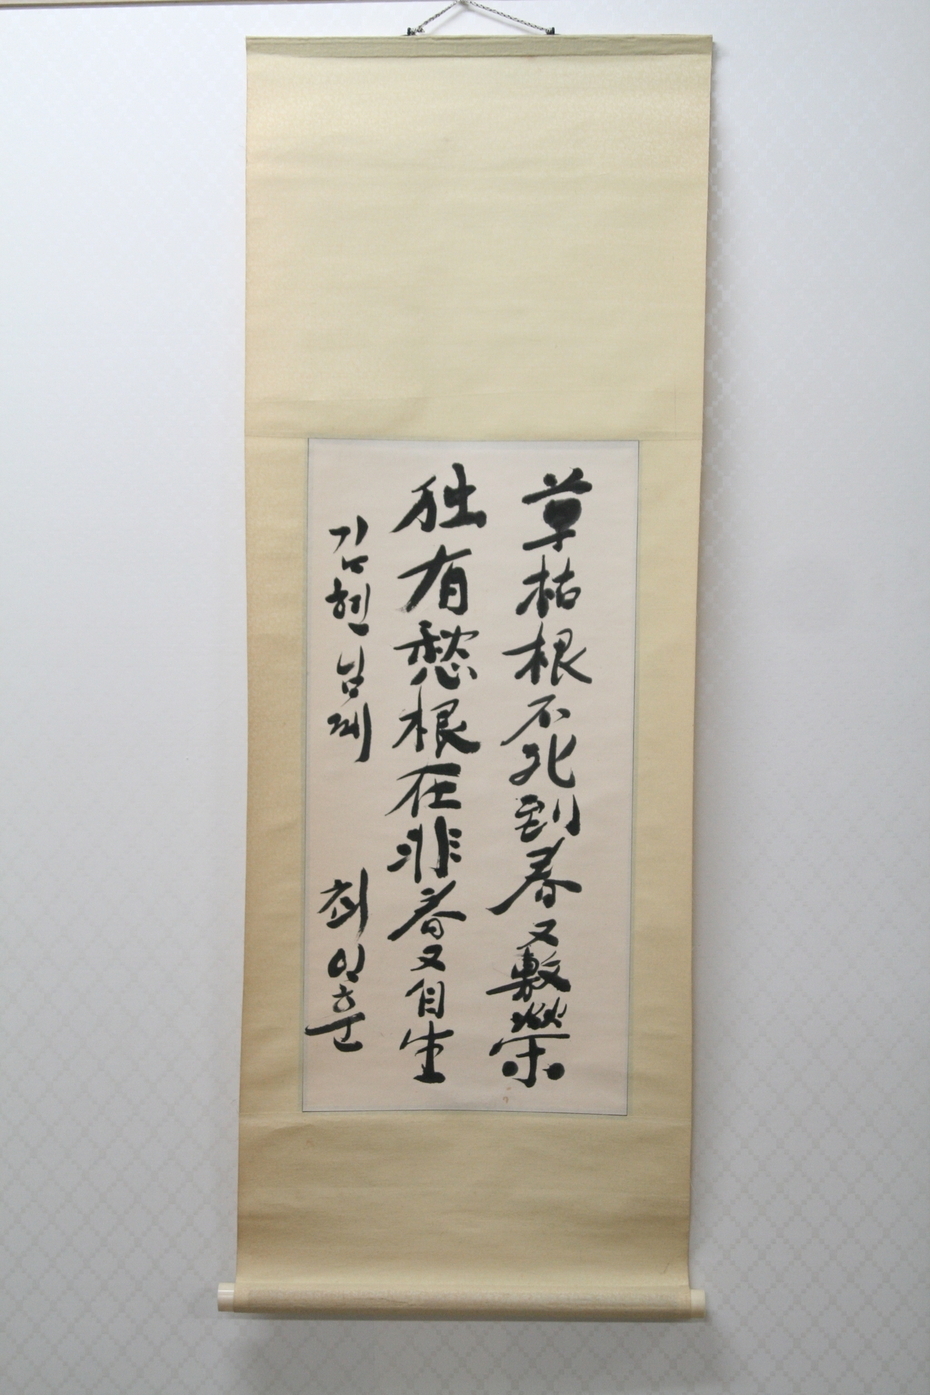 草枯根不死到春又敷榮
独有愁根在非春又自生
김현 님께
최인훈